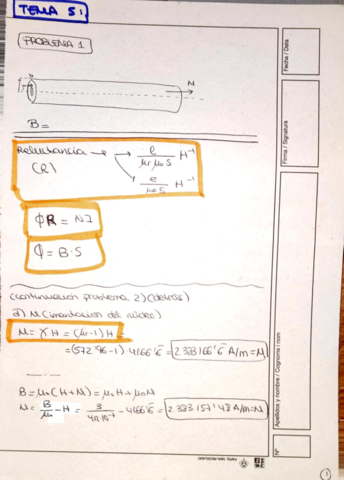 TEMA 5:
PROBLEMA 1
M
B =
Reluctancia → l / μr μ0 S H⁻¹
(R) → l / μ0 S H⁻¹
ΦR = NI
Φ = B·S
(continuación problema 2) (detrás)
d) M (imantación del núcleo)
M = χH = (μr-1) H =
= (572'96-1)·4166'6̄ = 2383166'6̄ A/m = M
B = μ0 (H+M) = μ0 H + μ0 M
M = B/μ0 - H = 3/4π10⁻⁷ - 4166'6̄ = 2.383.157'48 A/m = M
Fecha / Data
Firma / Signatura
Apellidos y nombre / Cognoms i nom
Nº
1